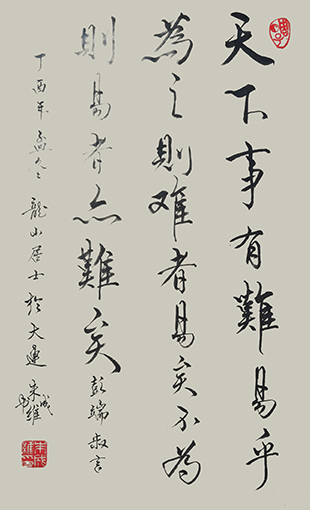 天下事有難易乎
為之則难者易矣不為
則易者亦難矣 彭端淑言
丁酉年孟冬 龍山居士於大連 朱成維書